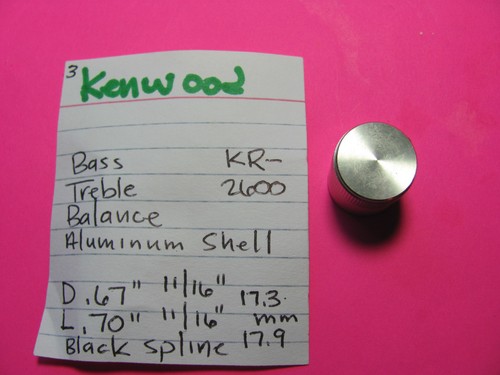 3
Kenwood
Bass KR-
Treble 2600
Balance
Aluminum Shell
D .67" 11/16" 17.3
L .70" 11/16" mm
Black spline 17.9